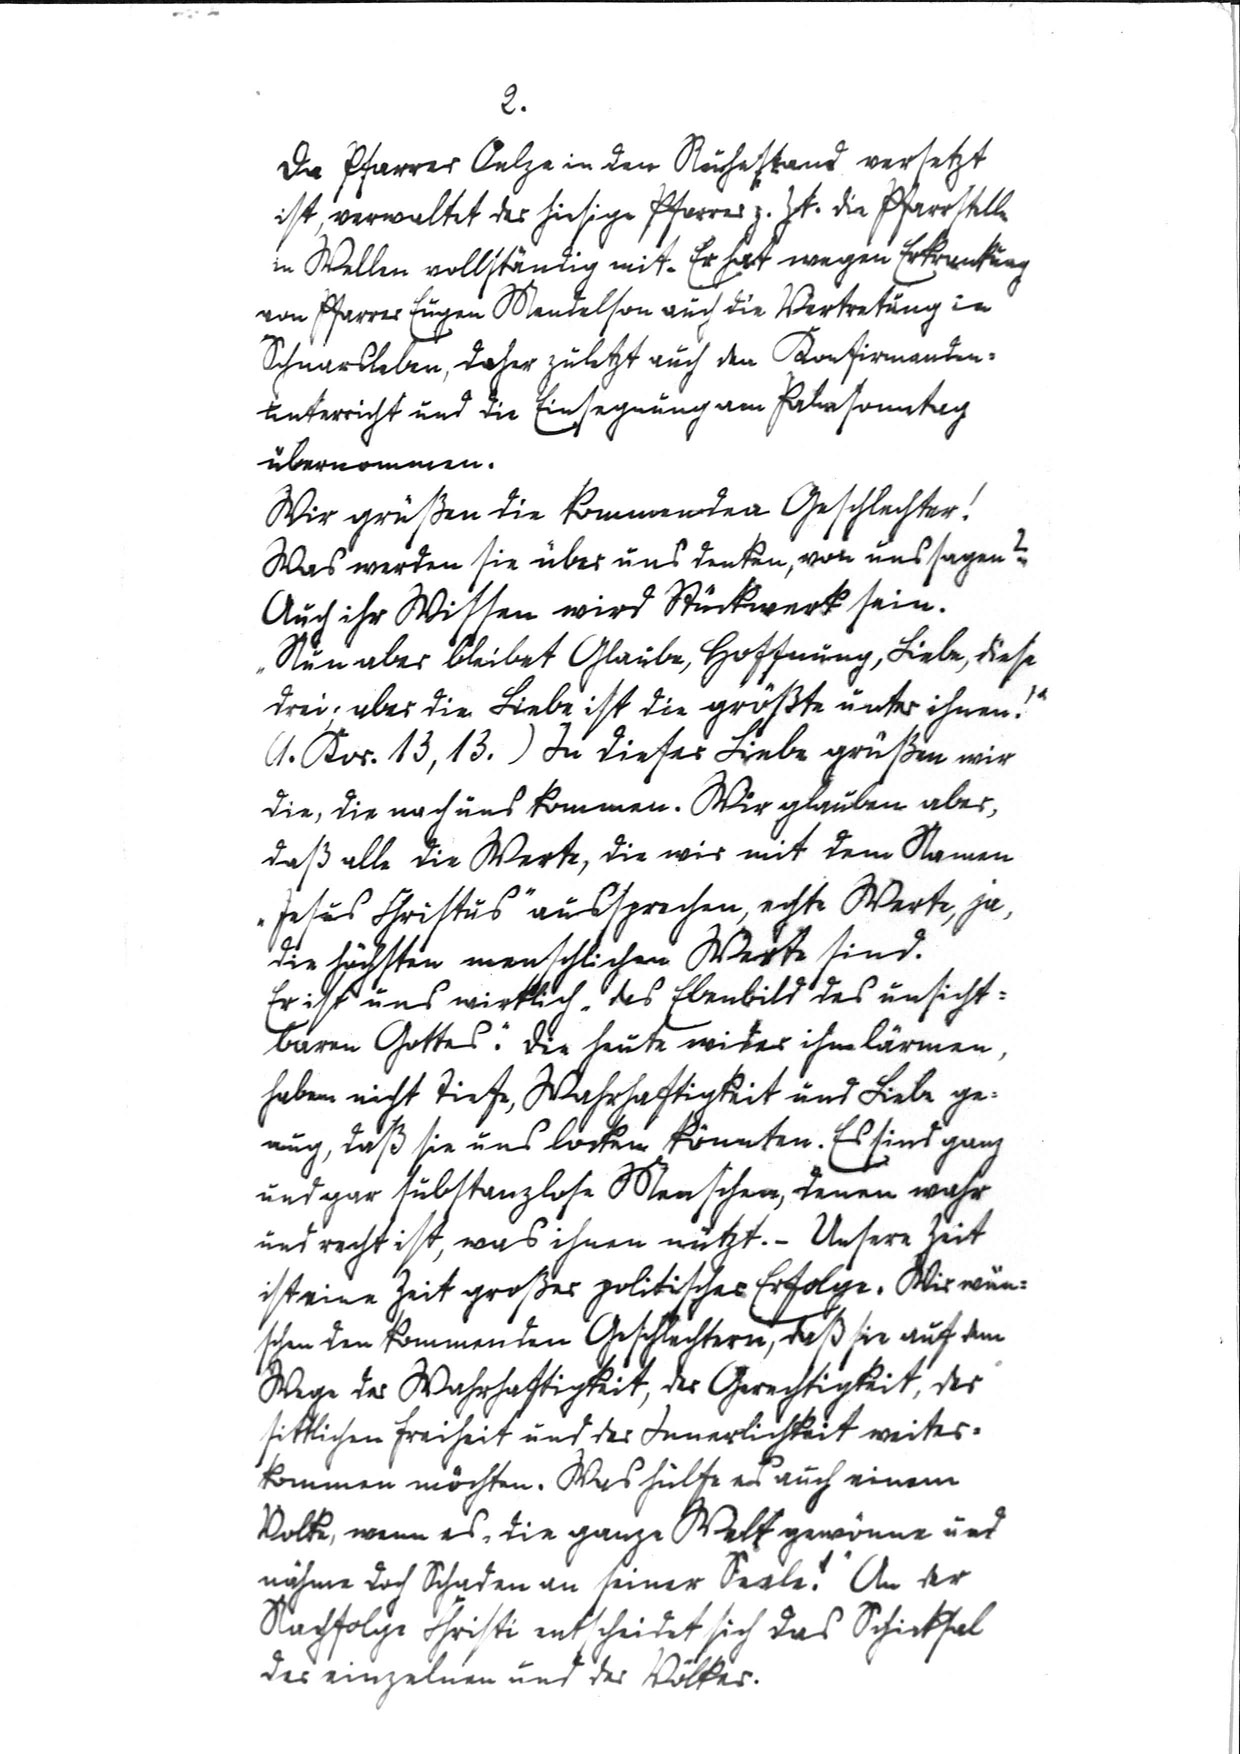 2.
Da Pfarrer Oelze in den Ruhestand versetzt
ist, verwaltet der hiesige Pfarrer z. Zt. die Pfarrstelle
in Wellen vollständig mit. Er hat wegen Erkrankung
von Pfarrer Eugen Mendelson auch die Vertretung in
Schnarsleben, daher zuletzt auch den Konfirmanden-
unterricht und die Einsegnung am Palmsonntag
übernommen.
Wir grüßen die kommenden Geschlechter!
Was werden sie über uns denken, von uns sagen? –
Auch ihr Wissen wird Stückwerk sein.
„Nun aber bleibet Glaube, Hoffnung, Liebe, diese
drei; aber die Liebe ist die größte unter ihnen!“
(1. Kor. 13, 13.) In dieser Liebe grüßen wir
die, die nach uns kommen. Wir glauben aber,
daß alle die Werte, die wir mit dem Namen
„Jesus Christus“ aussprechen, echte Werte, ja,
die höchsten menschlichen Werte sind.
Er ist uns wirklich „das Ebenbild des unsicht-
baren Gottes“. Die heute wider ihn lärmen,
haben nicht Tiefe, Wahrhaftigkeit und Liebe ge-
nug, daß sie uns locken könnten. Es sind ganz
und gar substanzlose Menschen, denen wahr
und recht ist, was ihnen nützt. – Unsere Zeit
ist eine Zeit großer politischer Erfolge. Wir wün-
schen den kommenden Geschlechtern, daß sie auf dem
Wege der Wahrhaftigkeit, der Gerechtigkeit, der
sittlichen Freiheit und der Innerlichkeit weiter-
kommen möchten. Was hülfe es auch einem
Volke, wenn es „die ganze Welt gewönne und
nähme doch Schaden an seiner Seele!“ An der
Nachfolge Christi entscheidet sich das Schicksal
der einzelnen und der Völker.